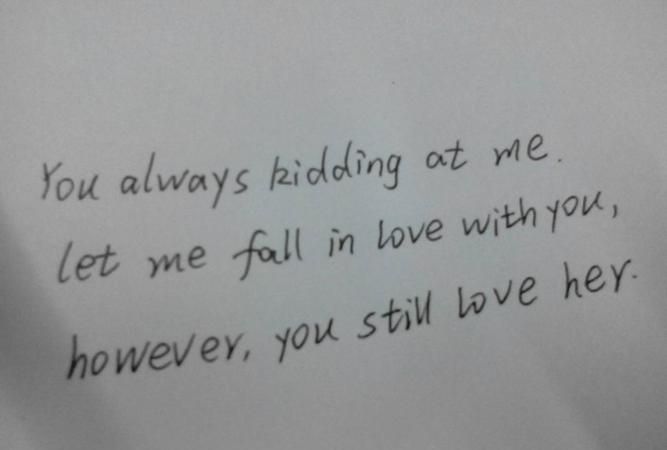 You always kidding at me.
let me fall in love with you,
however, you still love her.